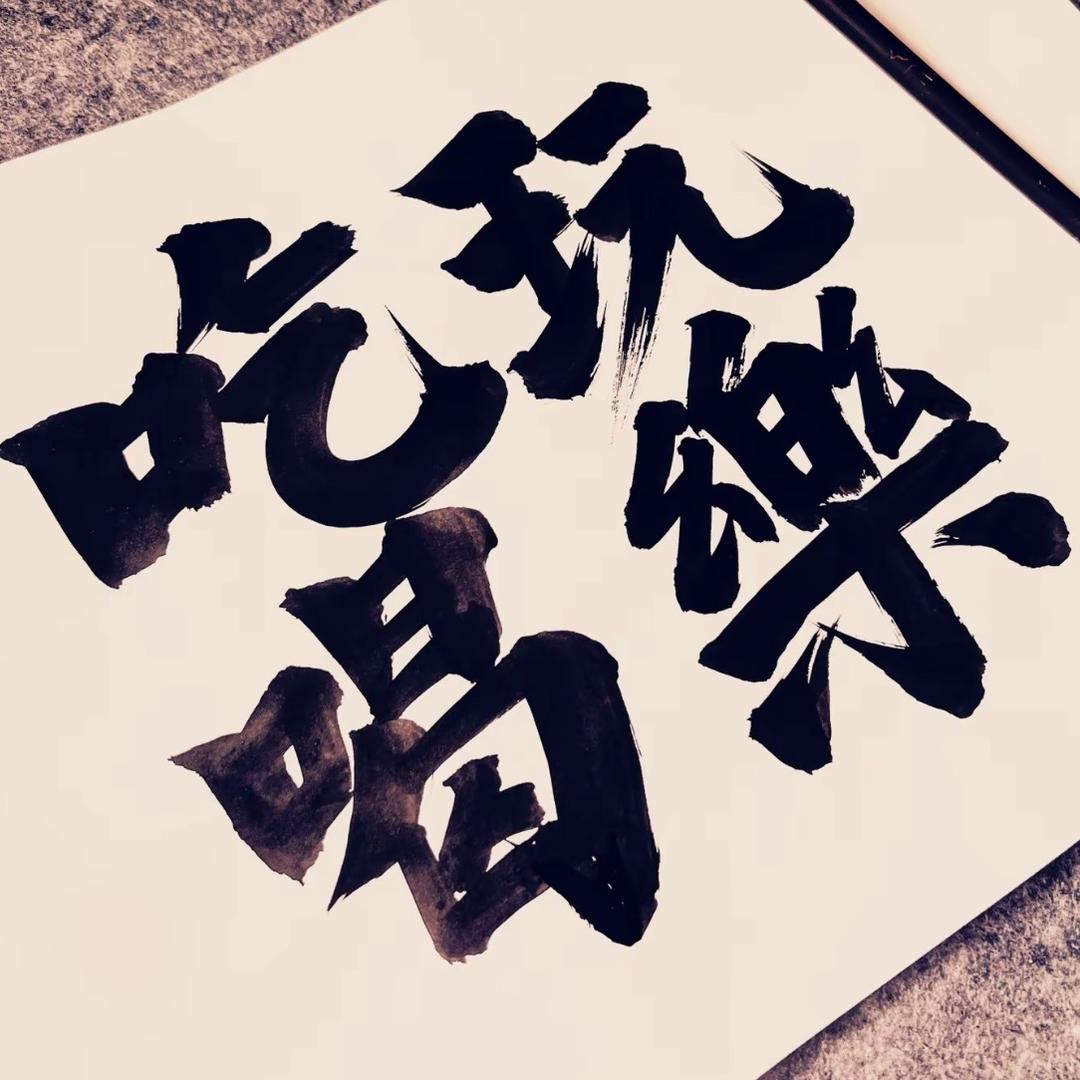 吃喝
玩樂